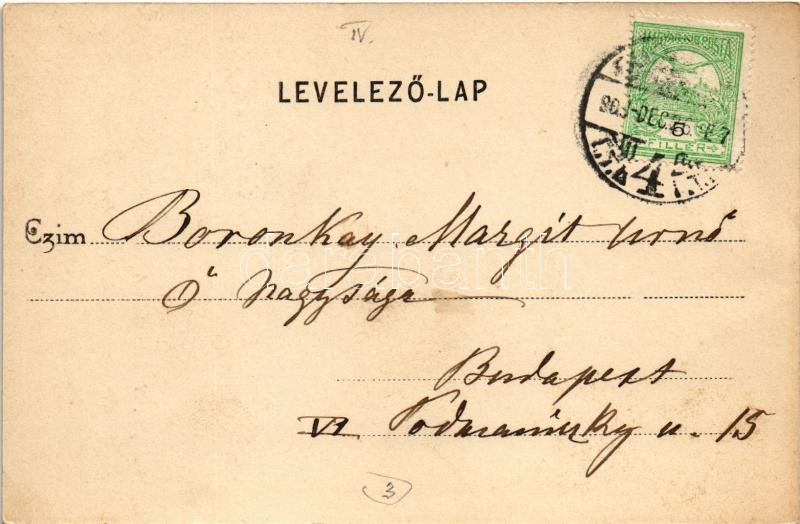 IV.
MAGYAR KIR. POSTA
LEVELEZŐ-LAP
5
FILLÉR
4
Czim Boronkay Margit úrnő
Ő Nagysága
darabanth
Budapest
VI Podmaniczky u. 15
3